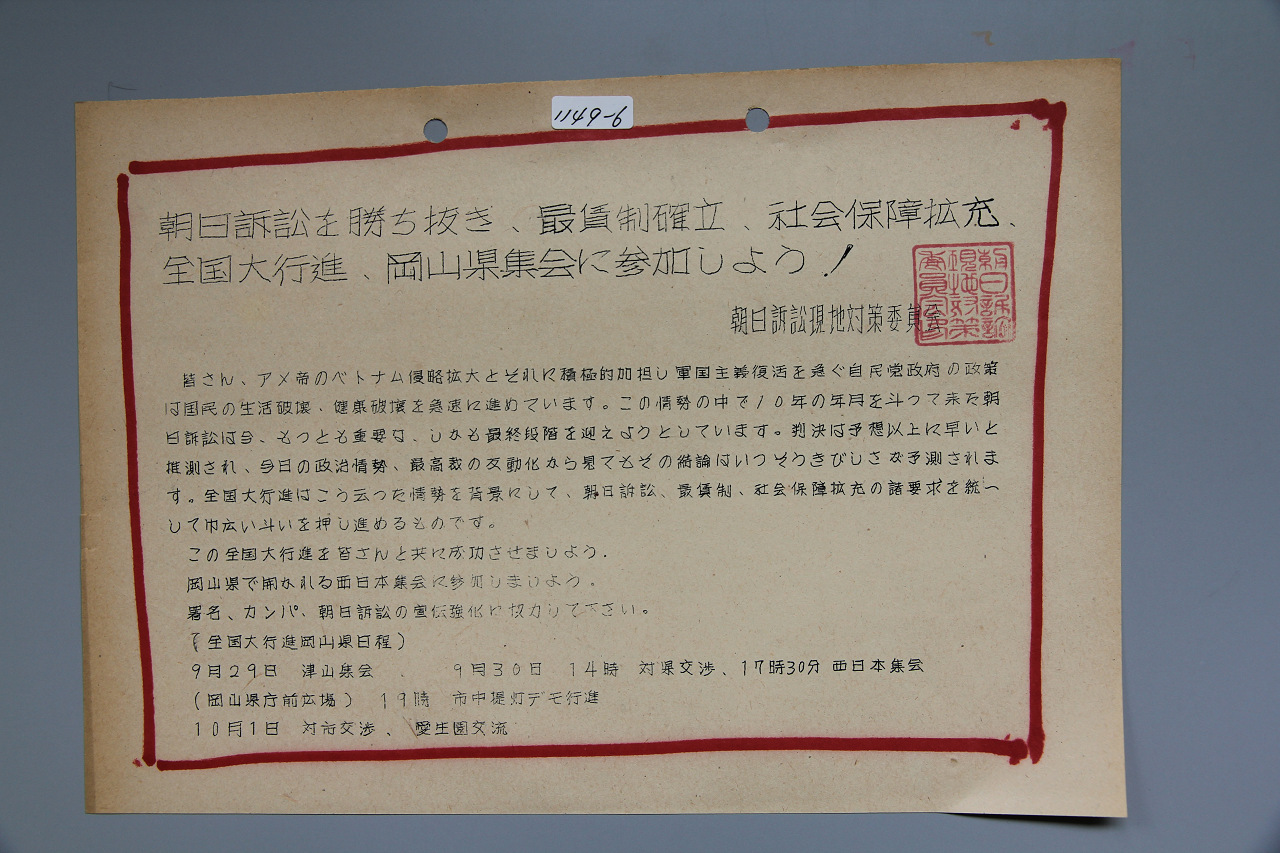 1149-6
朝日訴訟を勝ち抜き、最賃制確立、社会保障拡充、
全国大行進、岡山県集会に参加しよう!
朝日訴訟現地対策委員会
朝日訴訟
現地対策
委員会印
皆さん、アメ帝のベトナム侵略拡大とそれに積極的加担し軍国主義復活を急ぐ自民党政府の政策
は国民の生活破壊、健康破壊を急速に進めています。この情勢の中で10年の年月を斗って来た朝
日訴訟は今、もっとも重要な、しかも最終段階を迎えようとしています。判決は予想以上に早いと
推測され、今日の政治情勢、最高裁の反動化から見てもその結論はいっそうきびしさが予測されま
す。全国大行進はこう云った情勢を背景にして、朝日訴訟、最賃制、社会保障拡充の諸要求を統一
して巾広い斗いを押し進めるものです。
この全国大行進を皆さんと共に成功させましよう.
岡山県で開かれる西日本集会に参加しましよう。
署名、カンパ、朝日訴訟の宣伝強化に協力して下さい。
(全国大行進岡山県日程)
9月29日 津山集会 、 9月30日 14時 対県交渉、17時30分 西日本集会
(岡山県庁前広場) 19時 市中提灯デモ行進
10月1日 対市交渉、 愛生園交流